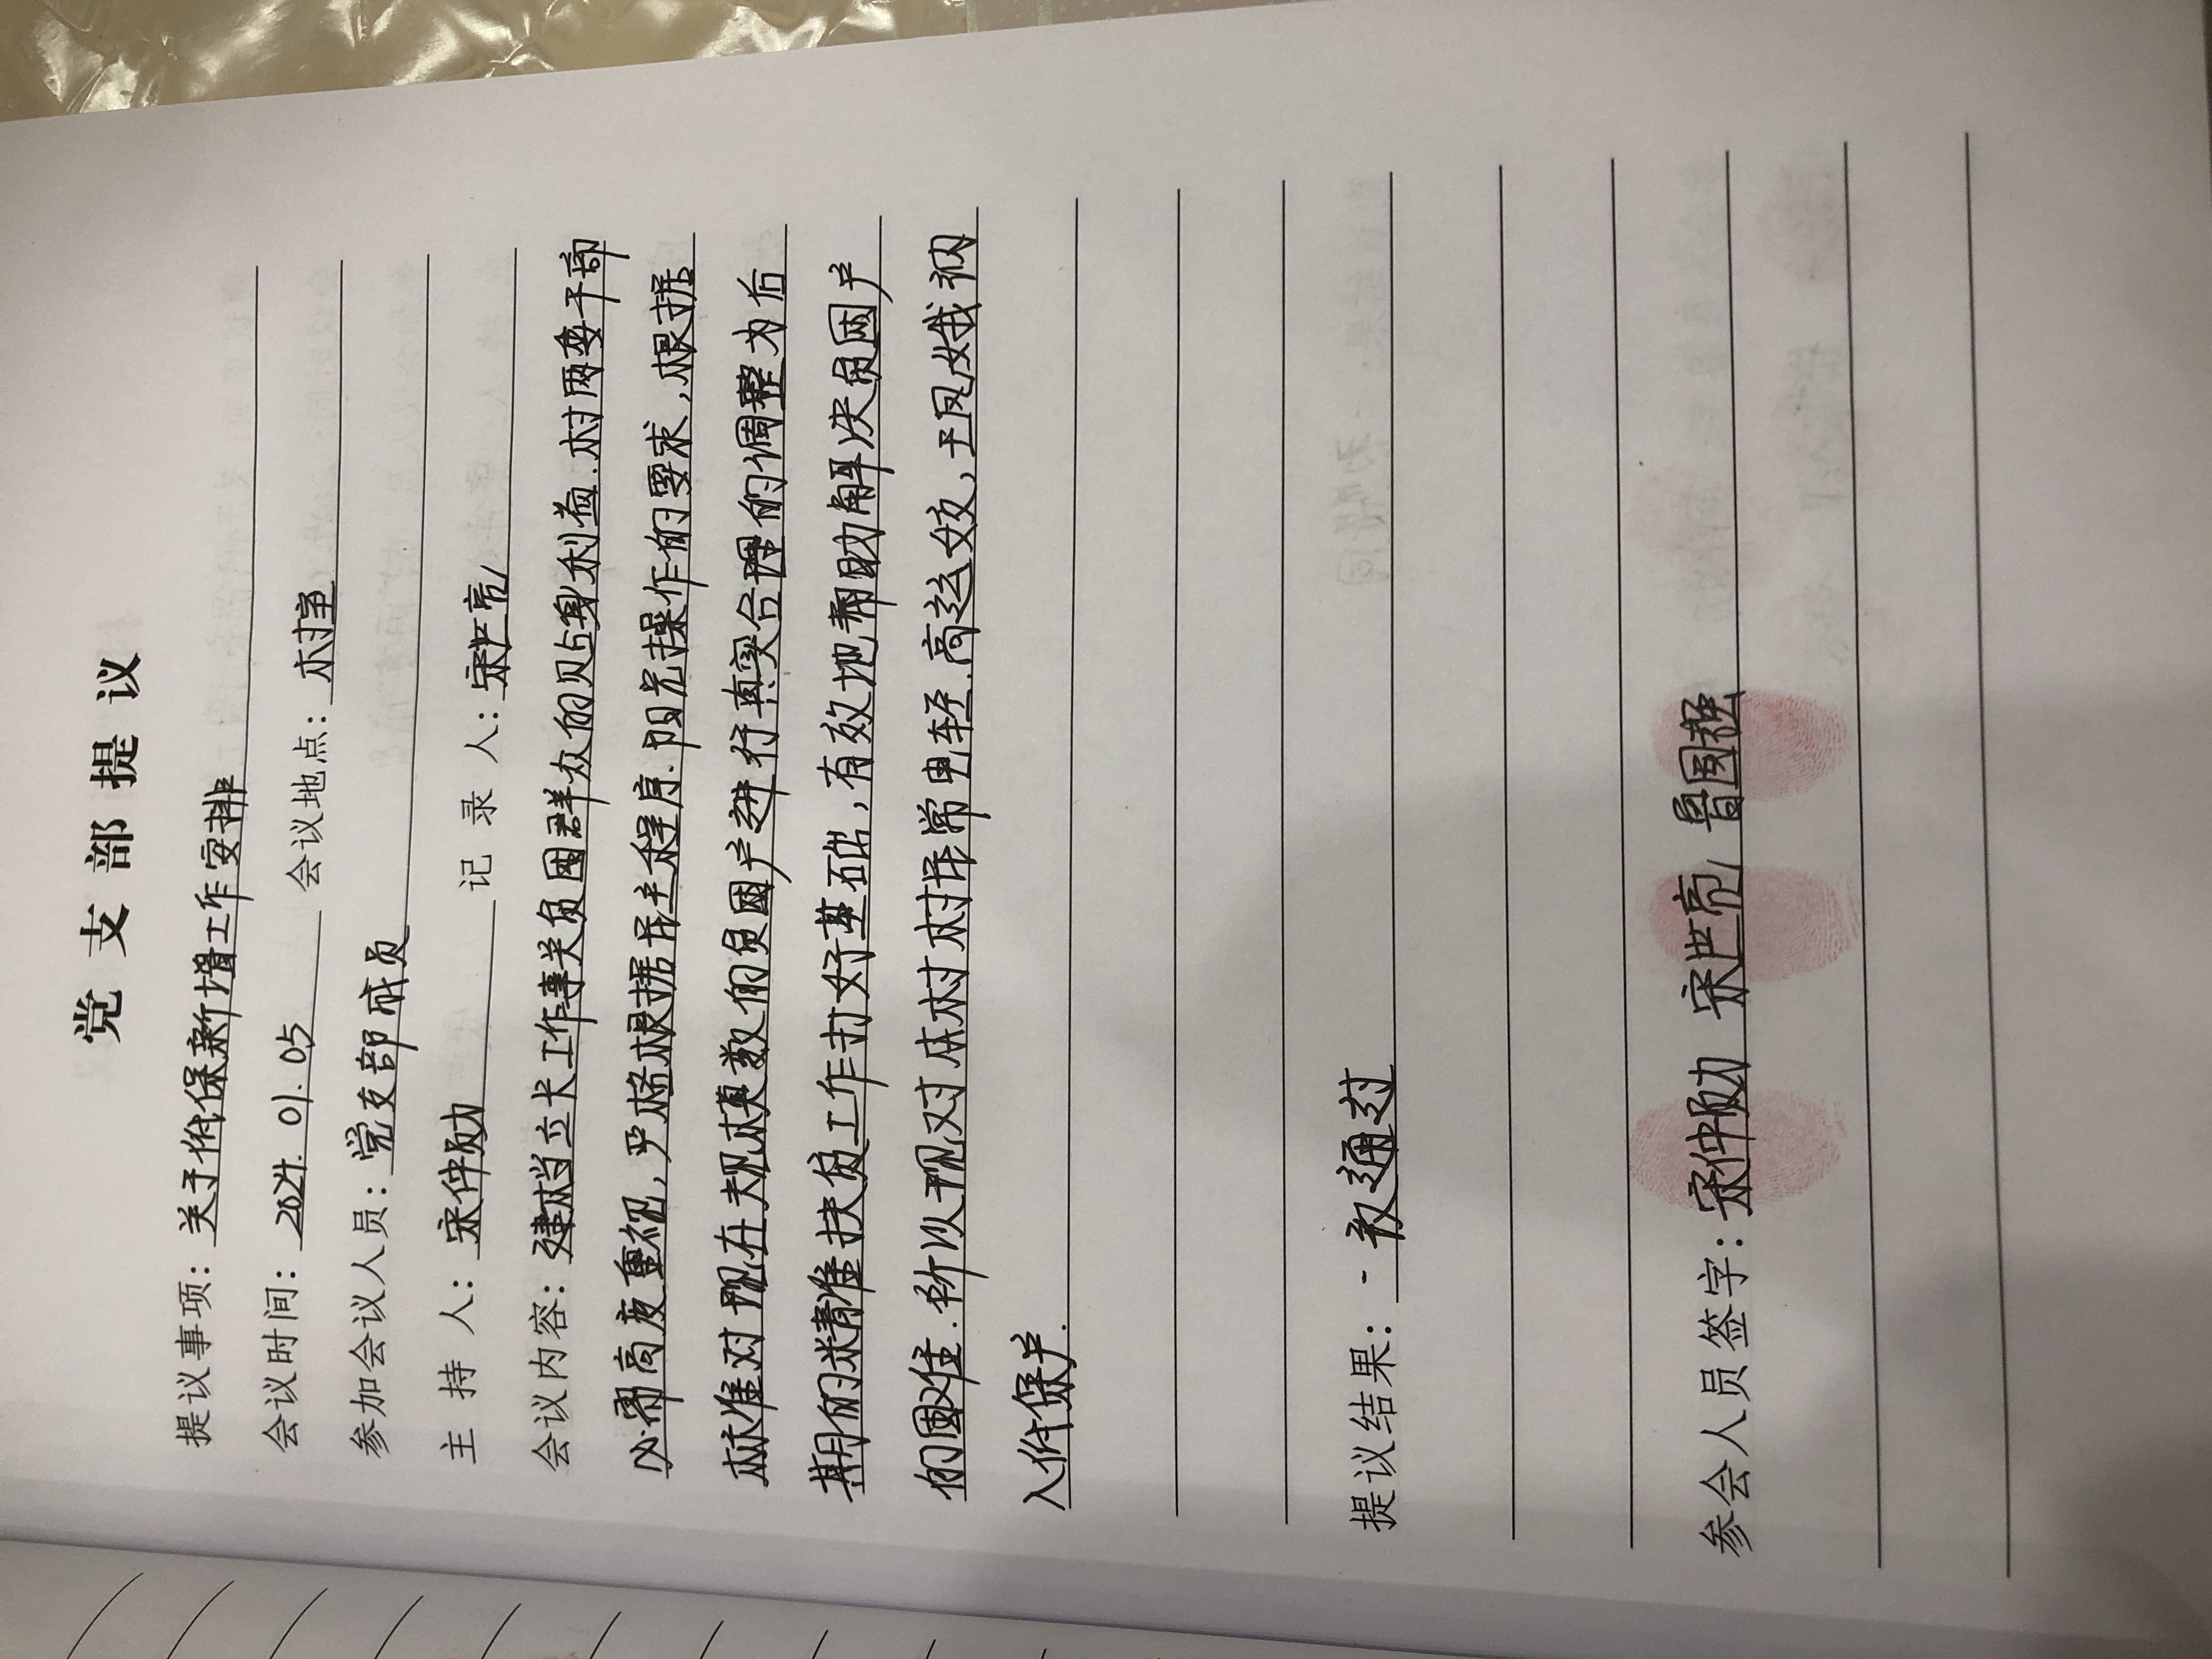 党支部提议
提议事项：关于低保新增工作安排
会议时间：2024.01.05 会议地点：村室
参加会议人员：党支部成员
主持人：宋仲勋 记录人：宋世亮
会议内容：建档立卡工作事关贫困群众的贴身利益.村两委干部
必需高度重视,严格根据民主程序.阳光操作的要求,根据
标准对现在规模数的贫困户进行真实合理的调整为后
期的精准扶贫工作打好基础,有效地帮助解决贫困户
的困难.所以现对本村村民常电轻.高运姣,王凤娥纳
入低保户.
提议结果：一致通过
参会人员签字：宋仲勋 宋世亮 鲁国强